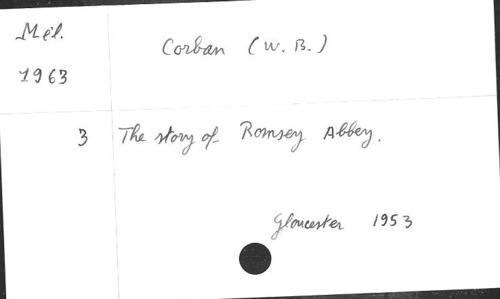 Mél.
1963
Corban (W. B.)
3 The story of Romsey Abbey.
Gloucester 1953